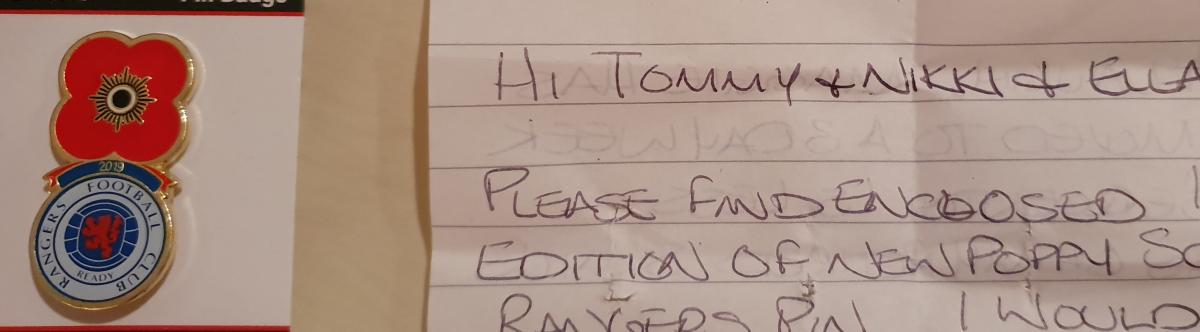 Pin Badge
2019
RANGERS FOOTBALL CLUB
READY
HI TOMMY & NIKKI & ELLA
PLEASE FIND ENCLOSED
EDITION OF NEW POPPY SC
RANGERS PIN I WOULD